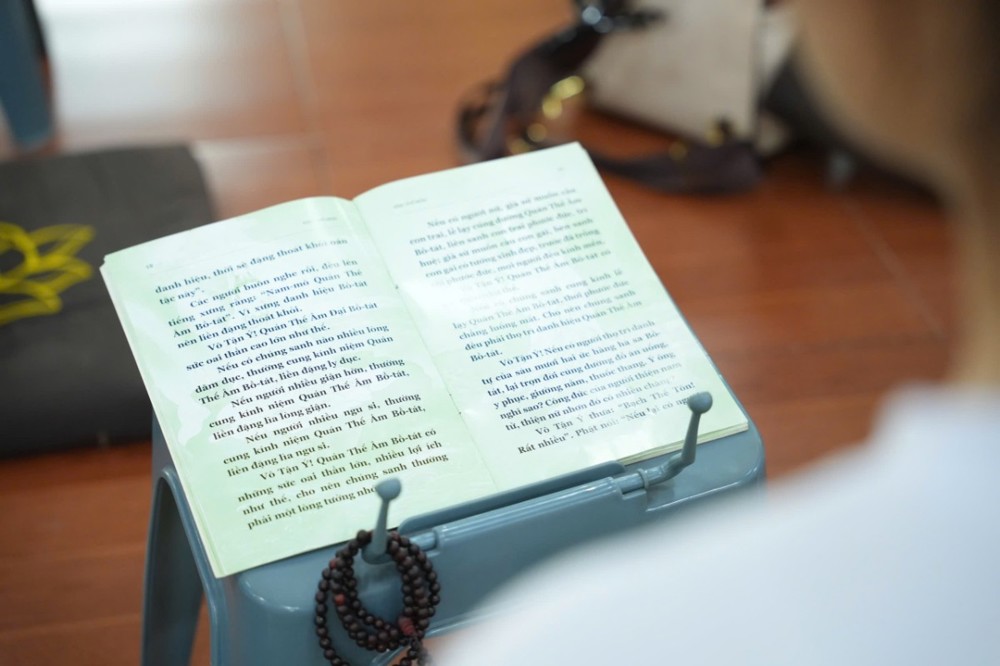 danh hiệu, thời sẽ đặng thoát khỏi oán
tặc này".
Các người buôn nghe rồi, đều lên
tiếng xưng rằng: "Nam-mô Quán Thế
Âm Bồ-tát". Vì xưng danh hiệu Bồ-tát
nên liền đặng thoát khỏi.
Vô Tận Ý! Quán Thế Âm Đại Bồ-tát
sức oai thần cao lớn như thế.
Nếu có chúng sanh nào nhiều lòng
dâm dục, thường cung kính niệm Quán
Thế Âm Bồ-tát, liền đặng ly dục.
Nếu người nhiều giận hờn, thường
cung kính niệm Quán Thế Âm Bồ-tát,
liền đặng lìa lòng giận.
Nếu người nhiều ngu si, thường
cung kính niệm Quán Thế Âm Bồ-tát,
liền đặng lìa ngu si.
Vô Tận Ý! Quán Thế Âm Bồ-tát có
những sức oai thần lớn, nhiều lợi ích
như thế, cho nên chúng sanh thường
phải một lòng tưởng
Nếu có người nữ, giả sử muốn cầu
con trai, lễ lạy cúng dường Quán Thế Âm
Bồ-tát, liền sanh con trai phước đức, trí
huệ; giả sử muốn cầu con gái, bèn sanh
con gái có tướng xinh đẹp, trước đã trồng
phước đức, mọi người đều kính mến.
Vô Tận Ý! Quán Thế Âm Bồ-tát có
chúng sanh cung kính lễ
lạy Quán Thế Âm Bồ-tát, thời phước đức
chẳng luống mất. Cho nên chúng sanh
đều phải thọ trì danh hiệu Quán Thế Âm
Bồ-tát.
Vô Tận Ý! Nếu có người thọ trì danh
tự của sáu mươi hai ức hằng hà sa Bồ-
tát, lại trọn đời cúng dường đồ ăn uống,
y phục, giường nằm, thuốc thang. Ý ông
nghĩ sao? Công đức của người thiện nam
tử, thiện nữ nhơn đó có nhiều chăng?
Vô Tận Ý thưa: "Bạch Thế Tôn!
Rất nhiều". Phật nói: "Nếu lại có người